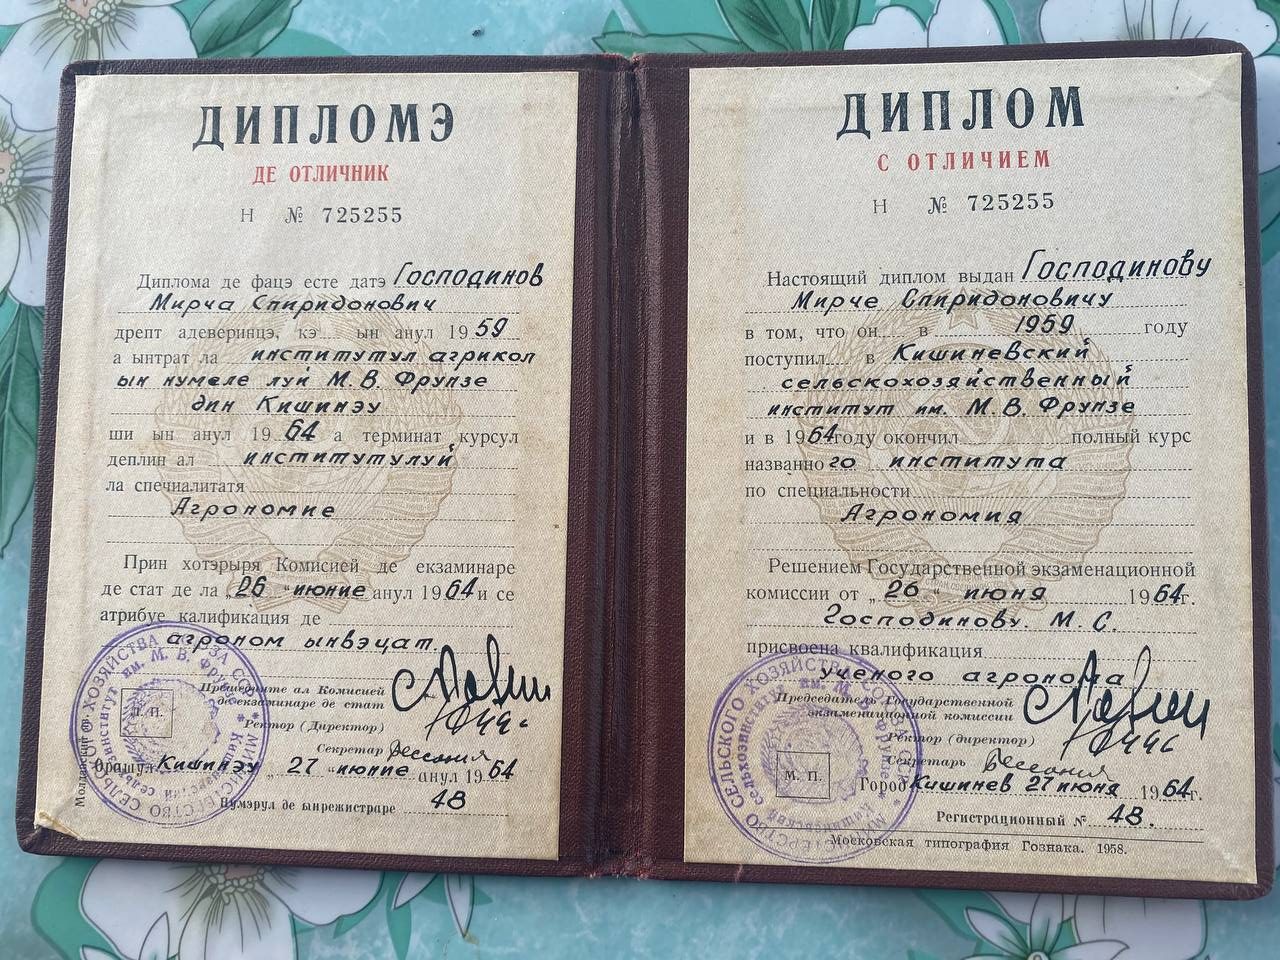 ДИПЛОМЭ
ДЕ ОТЛИЧНИК
Н № 725255
Диплома де фацэ есте датэ Господинов
Мирча Спиридонович
дрепт адеверинцэ, кэ ын анул 1959
а ынтрат ла институтул агрикол
ын нумеле луй М. В. Фрунзе
дин Кишинэу
ши ын анул 1964 а терминат курсул
деплин ал институтулуй
ла спечиалитатя
Агрономие
Прин хотэрыря Комисией де екзаминаре
де стат де ла „26 “ июние анул 1964 и се
атрибуе калификация де
агроном ынвэцат.
Прешединте ал Комисией
де екзаминаре де стат
Ректор (Директор)
Секретар
Орашул Кишинэу „ 27 “ июние анул 1964
Нумэрул де ынрежистраре 48
М. П.
ДИПЛОМ
С ОТЛИЧИЕМ
Н № 725255
Настоящий диплом выдан Господинову
Мирче Спиридоновичу
в том, что он в 1959 году
поступил в Кишиневский
сельскохозяйственный
институт им. М. В. Фрунзе
и в 1964 году окончил полный курс
названного института
по специальности
Агрономия
Решением Государственной экзаменационной
комиссии от „ 26 “ июня 1964 г.
Господинову. М. С.
присвоена квалификация
ученого агронома
Председатель Государственной
экзаменационной комиссии
Ректор (директор)
Секретарь
Город Кишинев 27 июня 1964 г.
Регистрационный № 48.
М. П.
Московская типография Гознака. 1958.